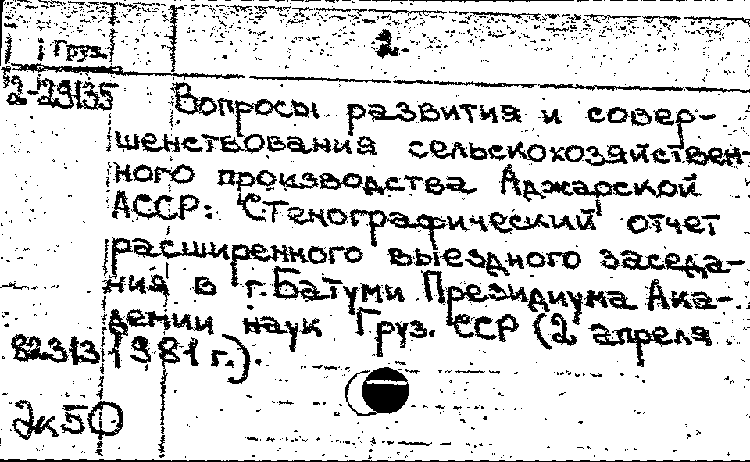 Груз.
2.
2-29135
Вопросы развития и совер-
шенствования сельскохозяйствен-
ного производства Аджарской
АССР: Стенографический отчет
расширенного выездного заседа-
ния в г. Батуми Президиума Ака-
демии наук Груз. ССР (2 апреля
1981 г.).
82313
Эк50